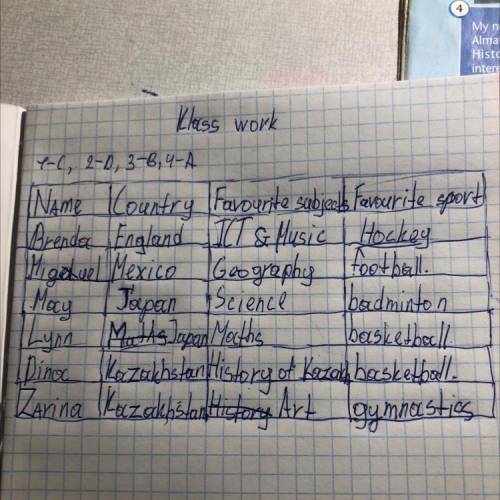 4
My n
Alma
Histo
intere
Klass work
1-C, 2-D, 3-B, 4-A
Name Country Favourite subjects Favourite sport
Brenda England ICT & Music Hockey
Miguel Mexico Geography football.
May Japan Science badminton
Lynn Maths Japan Maths basketball.
Dina Kazakhstan History of Kazakh basketball.
Zarina Kazakhstan History Art gymnastics